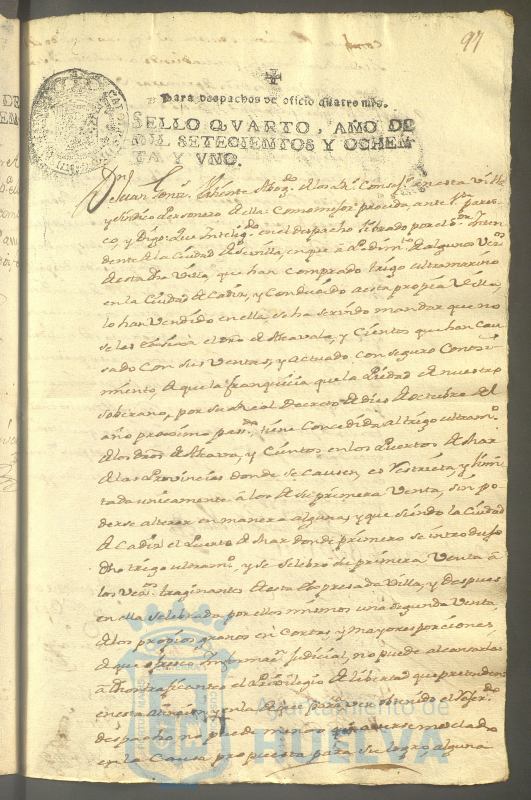 97
Para despachos de oficio quatro mrs.
SELLO QVARTO, AÑO DE
MIL SETECIENTOS Y OCHEN
TA Y VNO.
Dn. Juan Gonz. Valiente Abog.do de los Rs. Consejos en esta Villa
y Síndico Personero de ella: Como mejor proceda ante Vm. pares
co, y Digo: Que intelig.do en el despacho librado por el Sr. Inten
dente de la Ciudad de Sevilla, en que à Pedim.to de algunos Vecs.
de esta dha Villa, que han comprado trigo ultramarino
en la Ciudad de Cadiz, y Conducido a esta propia Villa,
lo han Vendido en ella, se ha servido mandar que no
se les exija el dro de Alcavala, y Cientos que han Cau
sado Con sus Ventas, y actuado con seguro Conoci
miento, de que la franquicia que la Piedad de nuestro
Soberano, por su Real Decreto de dies de Octubre del
año proximo pas.do tiene Concedida al trigo ultram.o
de los dros de Alcava, y Cientos en los Puertos de Mar
de las Provincias donde se Causen, es restricta, y limi
tada unicamente à los de su primera Venta, sin po
derse alterar en manera alguna, y que siendo la Ciudad
de Cadiz el Puerto de Mar donde primero se introdujo
dho trigo ultram.o, y se selebró su primera Venta à
los Vecs. traginantes de esta expresada Villa, y despues
en ella selebrada por ellos mismos una segunda Venta,
de los propios granos en Cortas, y mayores porciones
de que ofresco informas.n Judicial, no puede alcansarles
à dhos traficantes el Privilegio de libertad que pretenden
en esta
despacho no puede menos que
en la Causa propuesta para su logro alguna
Ayuntamiento de
HUELVA